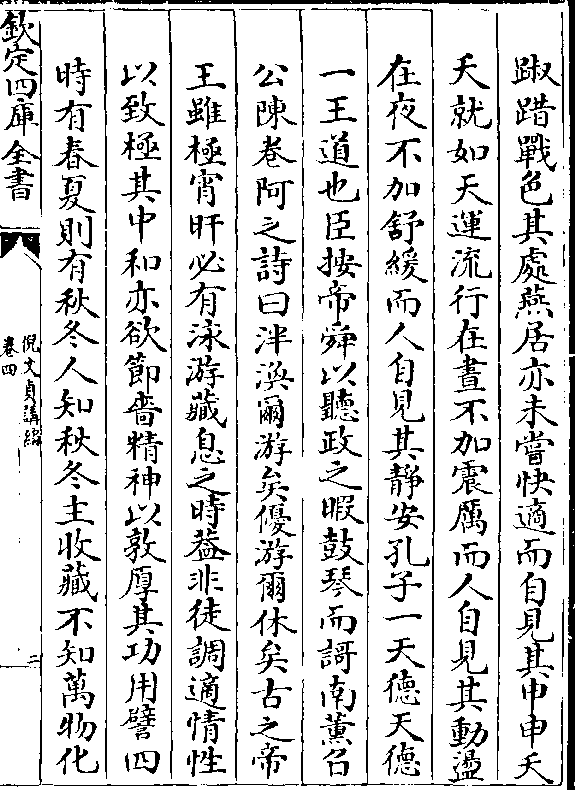 踧踖戰色其處燕居亦未嘗快適而自見其申申夭
夭就如天運流行在晝不加震厲而人自見其動盪
在夜不加舒緩而人自見其靜安孔子一天德天德
一王道也臣按帝舜以聽政之暇鼓琴而謌南薫召
公陳卷阿之詩曰泮渙爾游矣優游爾休矣古之帝
王雖極宵旰必有泳游藏息之時葢非徒調適情性
以致極其中和亦欲節嗇精神以敦厚其功用譬四
時有春夏則有秋冬人知秋冬主收藏不知萬物化
欽定四庫全書
倪文貞講編
卷四
二